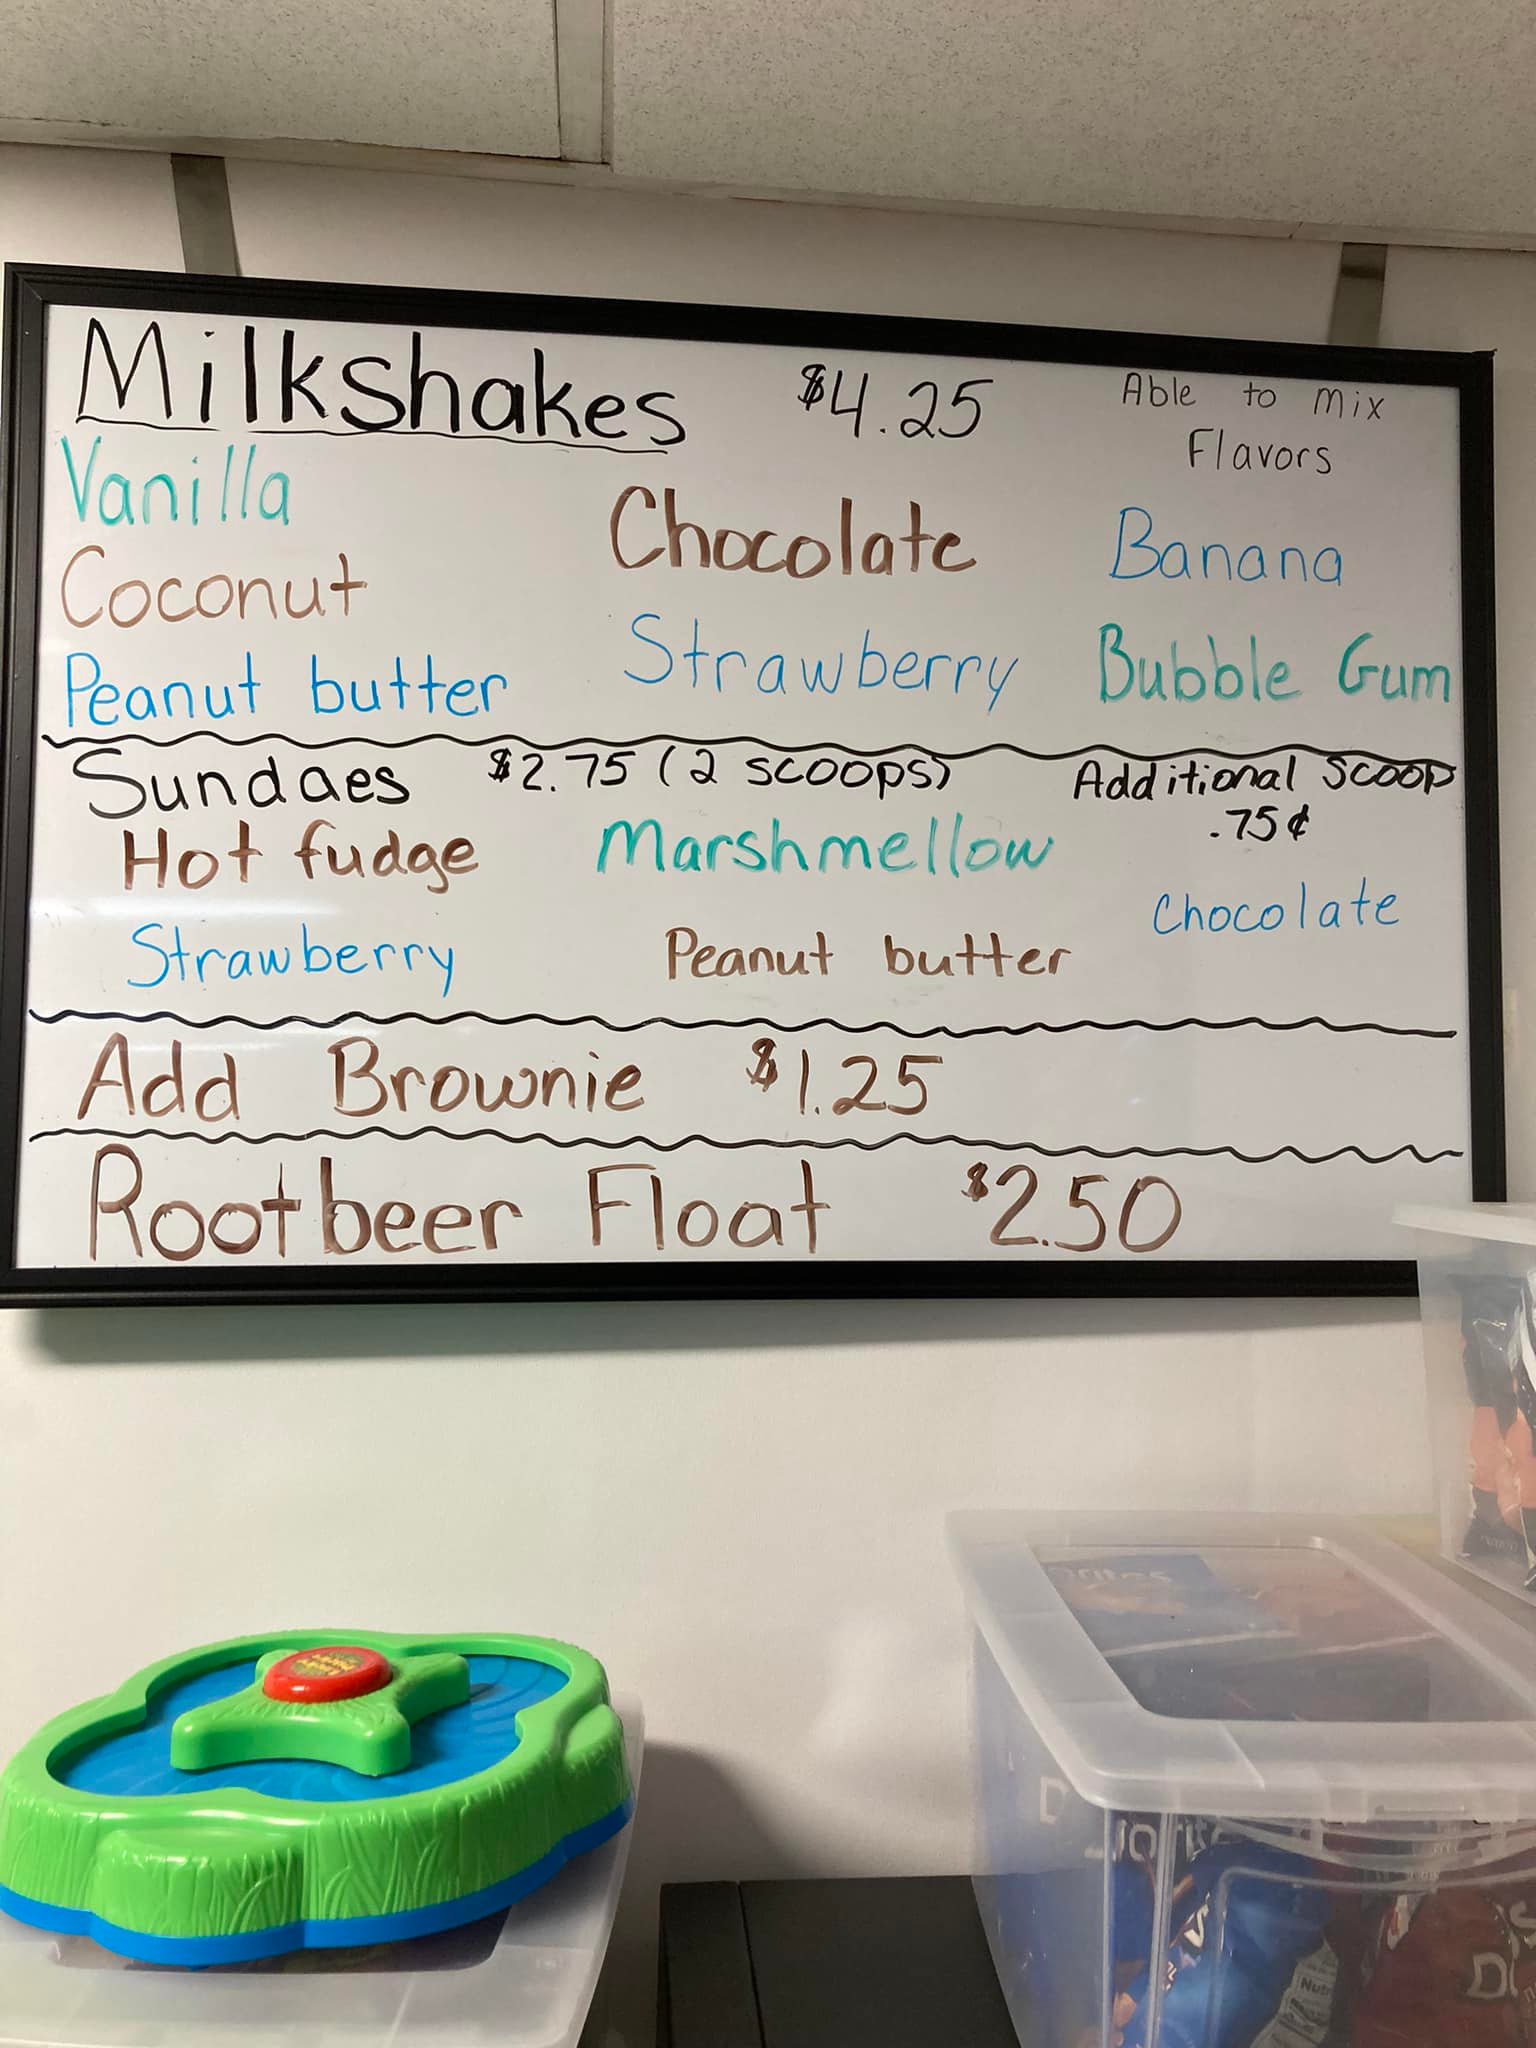 Milkshakes $4.25 Able to mix
Flavors
Vanilla Chocolate Banana
Coconut Strawberry Bubble Gum
Peanut butter
Sundaes $2.75 (2 scoops) Additional scoop
.75¢
Hot fudge Marshmellow Chocolate
Strawberry Peanut butter
Add Brownie $1.25
Rootbeer Float $2.50